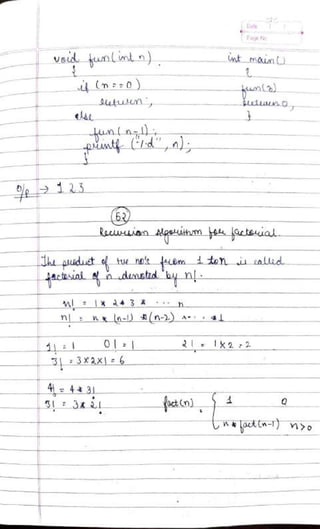 Date
Page No
void fun(int n)
{
if (n==0)
return;
else
fun(n-1);
printf ("%d", n);
}
int main()
{
fun(3)
return 0,
}
o/p → 1 2 3
52
Recursion algorithm for factorial
The product of +ve no's from 1 to n is called
factorial of n denoted by n!.
n! = 1* 2*3 * ... n
n! = n* (n-1) *(n-2) * ... *1
1! = 1 0! = 1 2! = 1×2 = 2
3! = 3×2×1 = 6
4! = 4*3!
3! = 3*2!
fact(n) { 1 0
n*fact(n-1) n>0